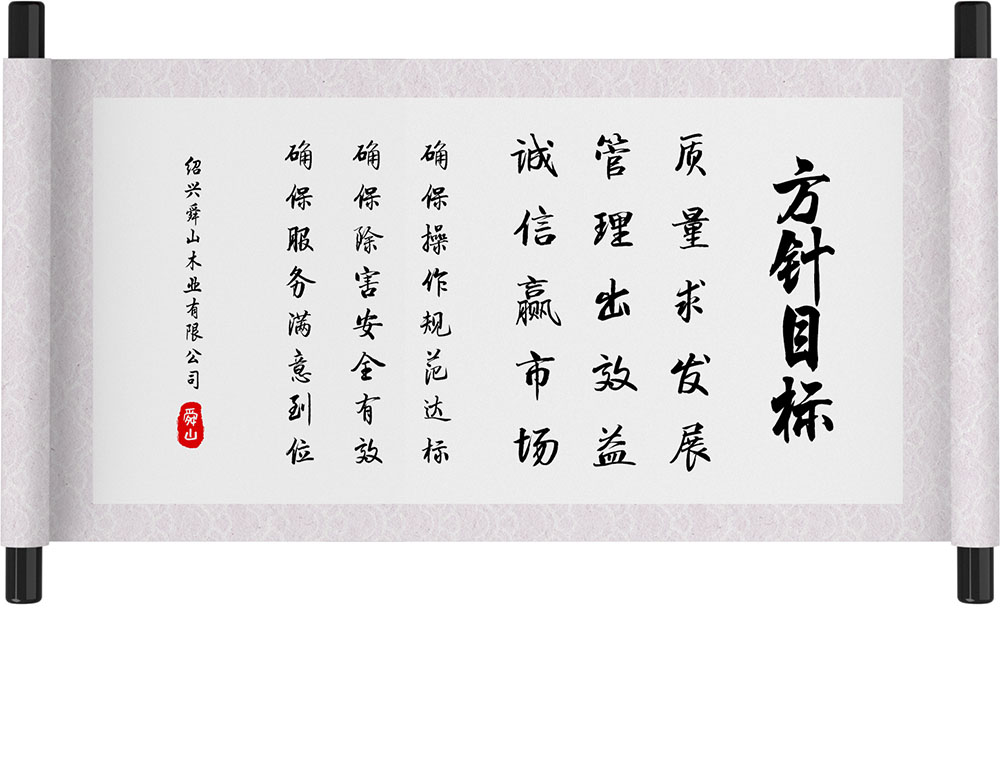 方针目标
质量求发展
管理出效益
诚信赢市场
确保操作规范达标
确保除害安全有效
确保服务满意到位
绍兴舜山木业有限公司
舜山